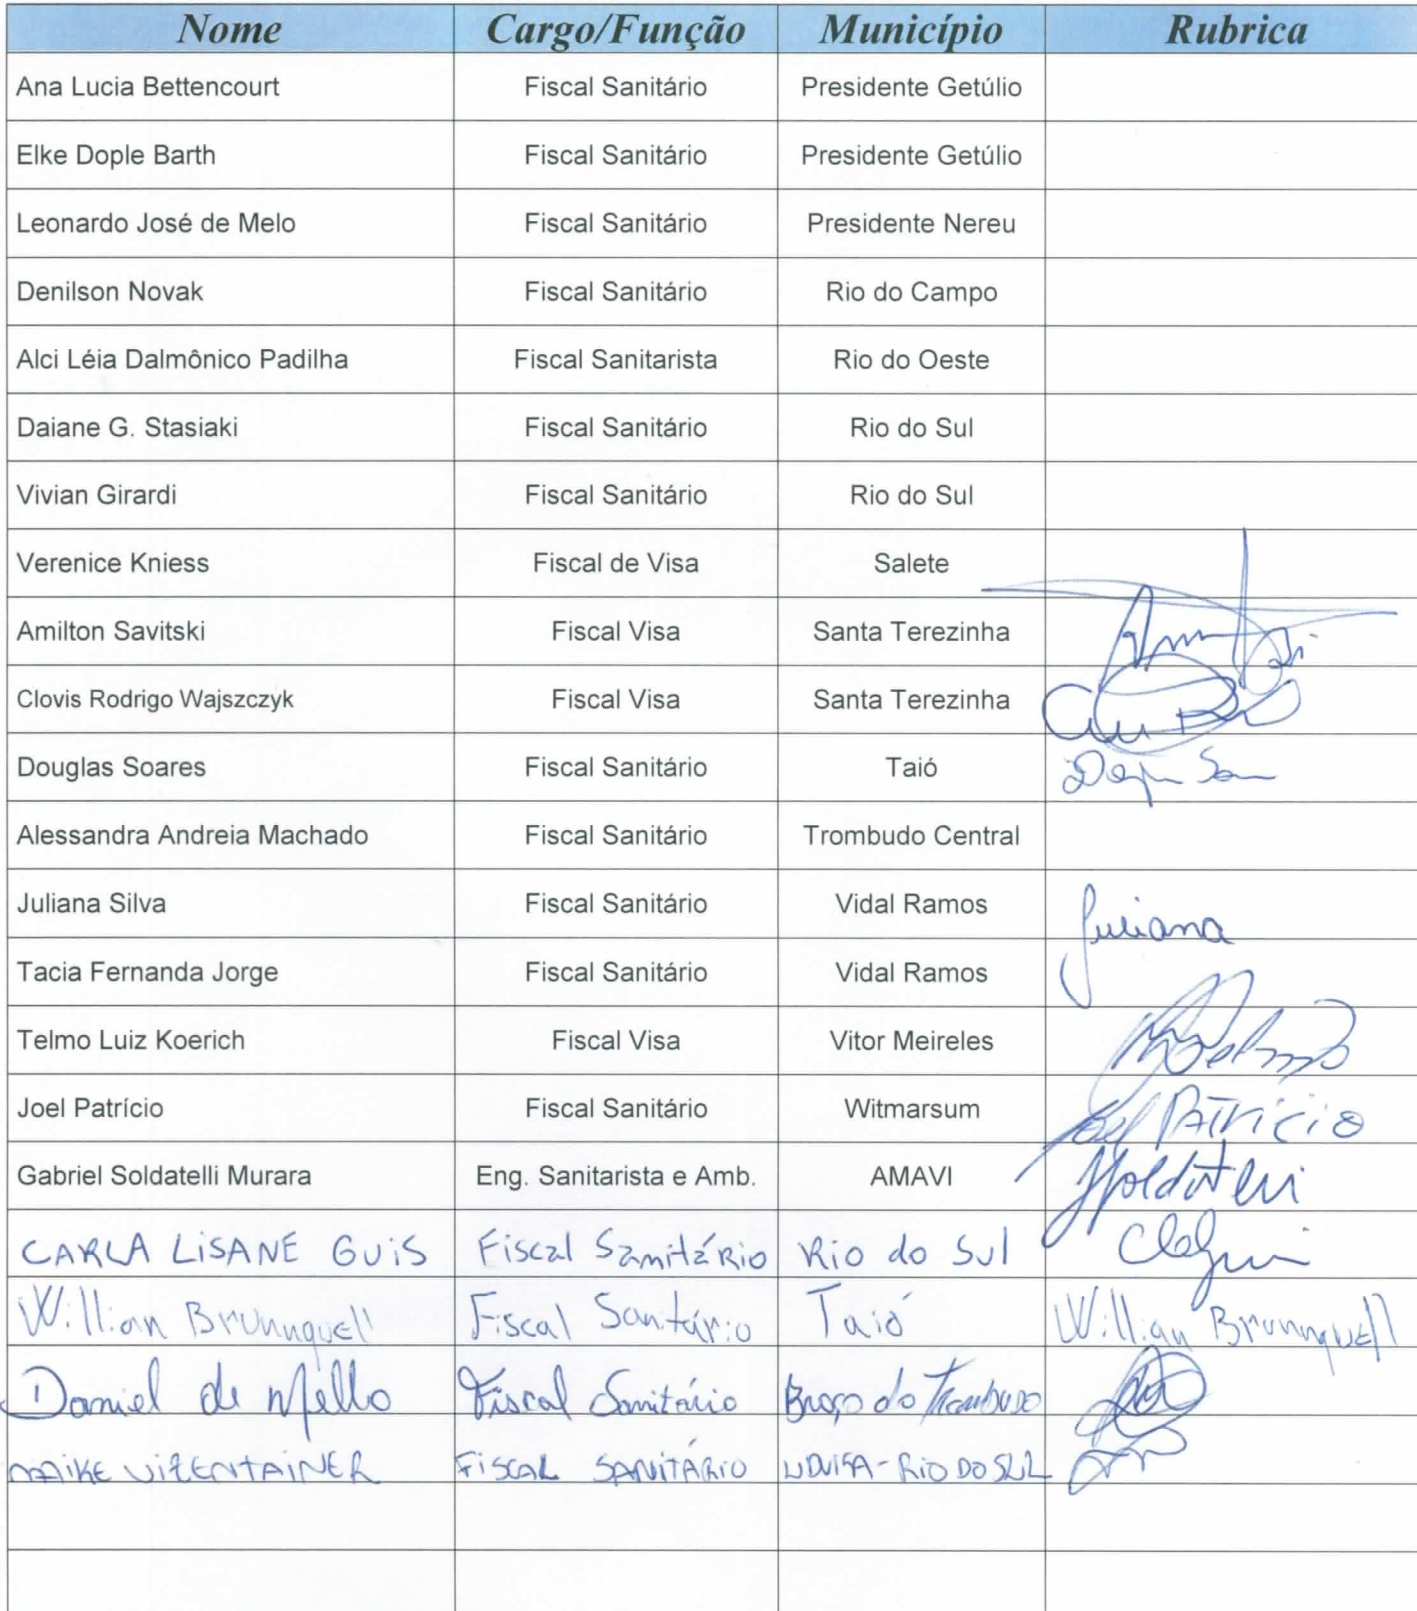 Nome Cargo/Função Município Rubrica
Ana Lucia Bettencourt Fiscal Sanitário Presidente Getúlio
Elke Dople Barth Fiscal Sanitário Presidente Getúlio
Leonardo José de Melo Fiscal Sanitário Presidente Nereu
Denilson Novak Fiscal Sanitário Rio do Campo
Alci Léia Dalmônico Padilha Fiscal Sanitarista Rio do Oeste
Daiane G. Stasiaki Fiscal Sanitário Rio do Sul
Vivian Girardi Fiscal Sanitário Rio do Sul
Verenice Kniess Fiscal de Visa Salete
Amilton Savitski Fiscal Visa Santa Terezinha
Clovis Rodrigo Wajszczyk Fiscal Visa Santa Terezinha
Douglas Soares Fiscal Sanitário Taió
Alessandra Andreia Machado Fiscal Sanitário Trombudo Central
Juliana Silva Fiscal Sanitário Vidal Ramos Juliana
Tacia Fernanda Jorge Fiscal Sanitário Vidal Ramos
Telmo Luiz Koerich Fiscal Visa Vitor Meireles
Joel Patrício Fiscal Sanitário Witmarsum Joel Patricio
Gabriel Soldatelli Murara Eng. Sanitarista e Amb. AMAVI
CARLA LISANE GUIS Fiscal Sanitário Rio do Sul
Willian Brunnquell Fiscal Sanitário Taió Willian Brunnquell
Daniel de Mello Fiscal Sanitário Braço do Trombudo
MAIKE VIZENTAINER FISCAL SANITÁRIO RIO DO SUL